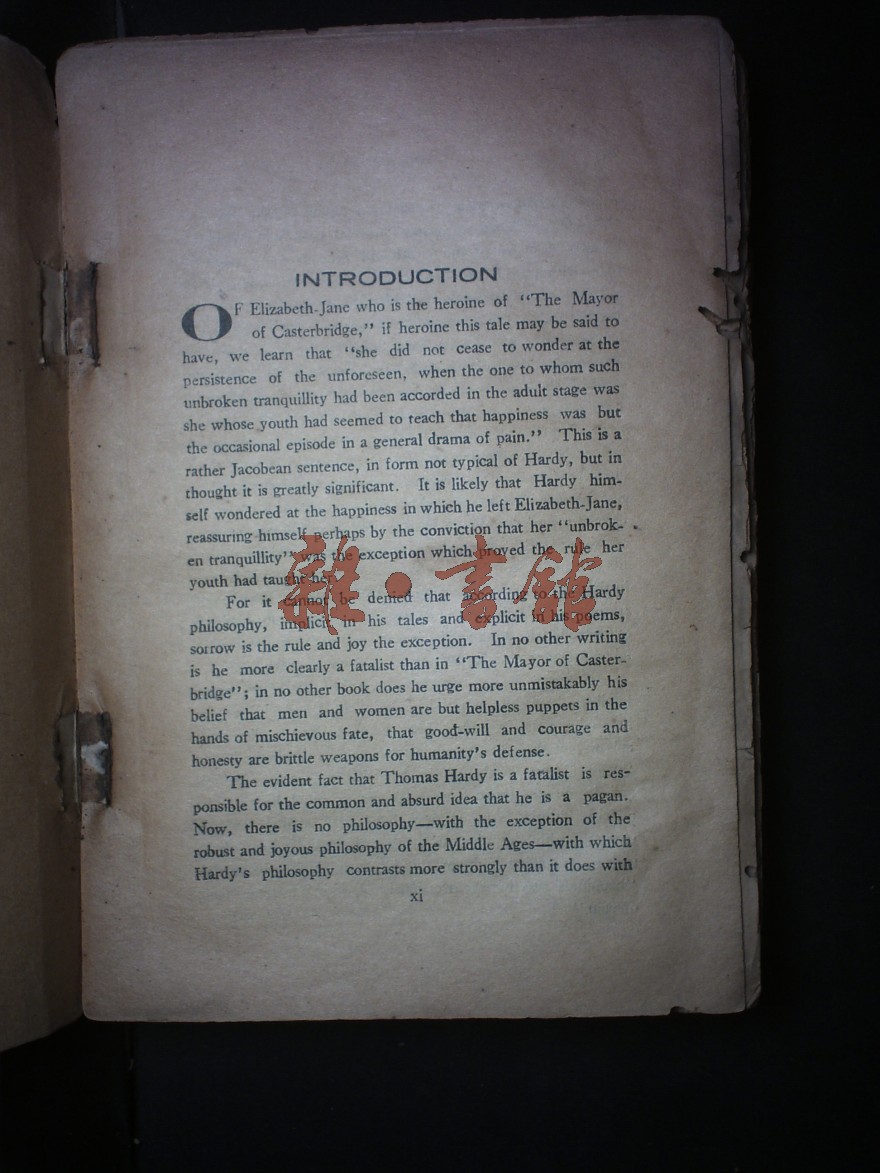 INTRODUCTION
OF Elizabeth-Jane who is the heroine of "The Mayor
of Casterbridge," if heroine this tale may be said to
have, we learn that "she did not cease to wonder at the
persistence of the unforeseen, when the one to whom such
unbroken tranquillity had been accorded in the adult stage was
she whose youth had seemed to teach that happiness was but
the occasional episode in a general drama of pain." This is a
rather Jacobean sentence, in form not typical of Hardy, but in
thought it is greatly significant. It is likely that Hardy him-
self wondered at the happiness in which he left Elizabeth-Jane,
reassuring himself perhaps by the conviction that her "unbrok-
en tranquillity" was the exception which proved the rule her
youth had taught her.
For it cannot be denied that according to the Hardy
philosophy, implicit in his tales and explicit in his poems,
sorrow is the rule and joy the exception. In no other writing
is he more clearly a fatalist than in "The Mayor of Caster-
bridge"; in no other book does he urge more unmistakably his
belief that men and women are but helpless puppets in the
hands of mischievous fate, that good-will and courage and
honesty are brittle weapons for humanity's defense.
The evident fact that Thomas Hardy is a fatalist is res-
ponsible for the common and absurd idea that he is a pagan.
Now, there is no philosophy—with the exception of the
robust and joyous philosophy of the Middle Ages—with which
Hardy's philosophy contrasts more strongly than it does with
xi
雜·書館